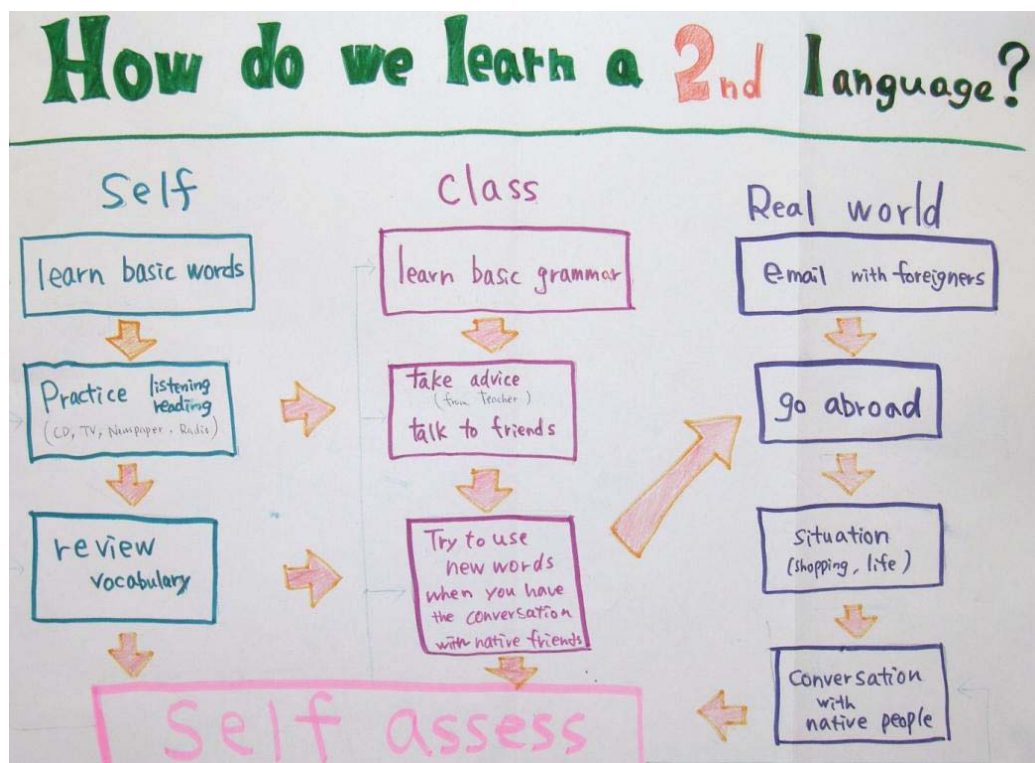 How do we learn a 2nd language?
Self
learn basic words
Practice listening
reading
(CD, TV, Newspaper, Radio)
review
vocabulary
Class
learn basic grammar
take advice
(from Teacher)
talk to friends
Try to use
new words
when you have
the conversation
with native friends
Real world
e-mail with foreigners
go abroad
situation
(shopping, life)
Conversation
with
native people
Self assess